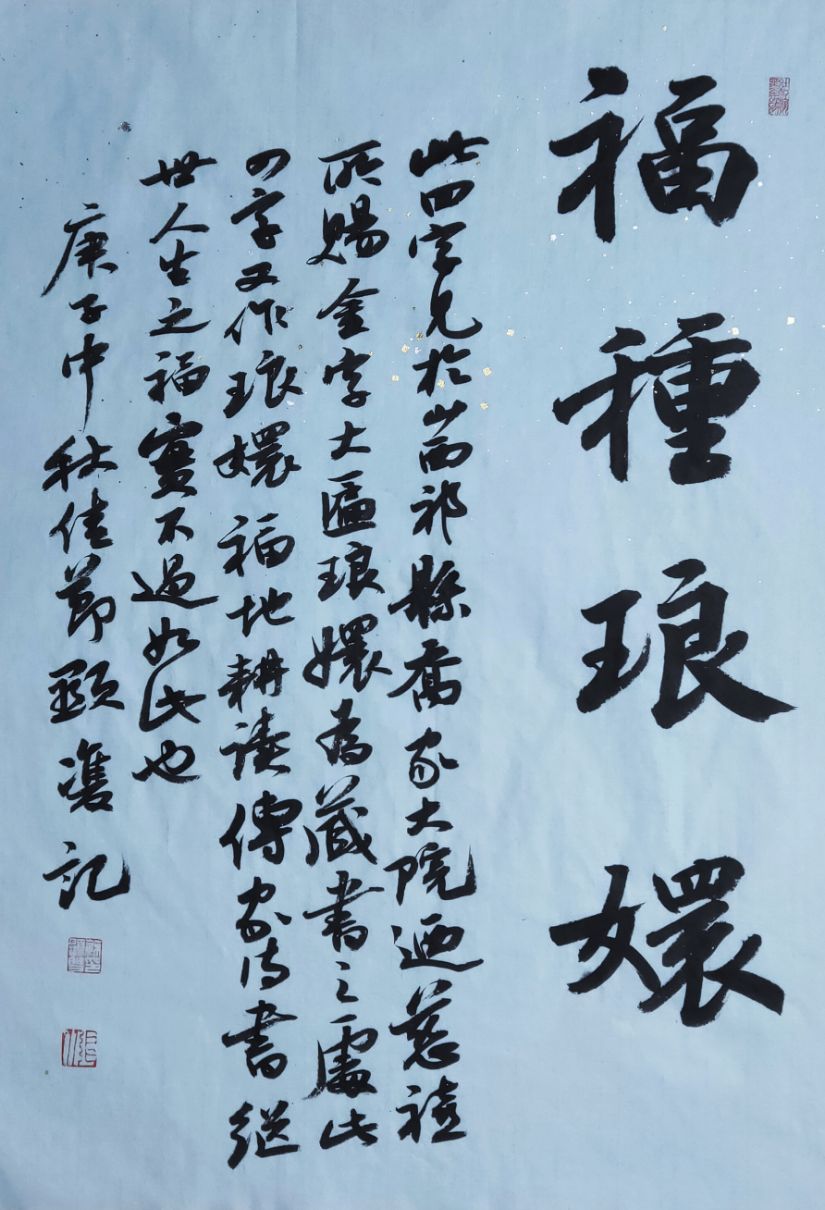 福種琅嬛
此四字見於山西祁縣喬家大院迺慈禧
所賜金字大匾琅嬛為藏書之處此
四字又作琅嬛福地耕讀傳家詩書繼
世人生之福實不過如此也
庚子中秋佳節顯鴻記